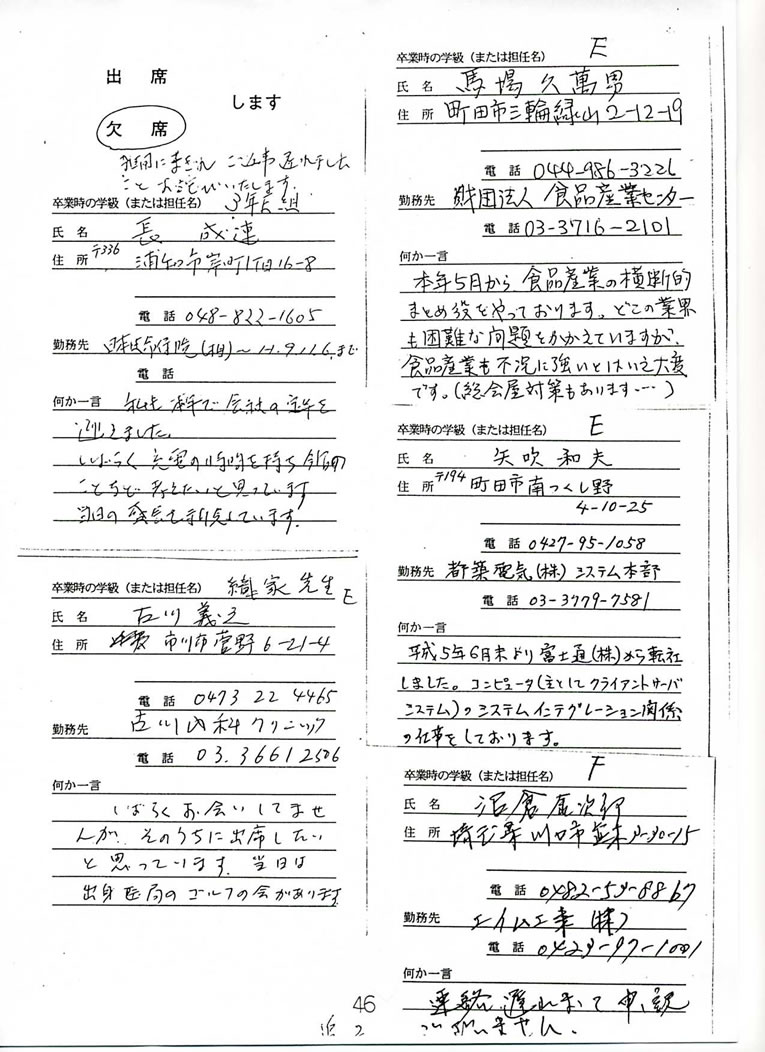 出 席
します
欠 席
ご返事遅れました
こと お詫びいたします。
卒業時の学級（または担任名） 3年E組
氏 名 長 成連
住 所 〒336 浦和市岸町1丁目16-8
電 話 048-822-1605
勤務先
電 話
何か一言 私も 会社の定年を
迎えました。
しばらく 充電の時間を持ち 今後の
ことなど 考えたいと思っています
当日の 盛会を 祈念しています!
卒業時の学級（または担任名） 織家先生 E
氏 名 古川 義之
住 所 市川市菅野 6-21-4
電 話 0473 22 4465
勤務先 古川内科クリニック
電 話 03.3661 2506
何か一言
しばらくお会いしてませ
んが、そのうちに出席したい
と思っています。当日は
出身医局のゴルフの会があります
卒業時の学級（または担任名） E
氏 名 馬場 久萬男
住 所 町田市三輪緑山2-12-19
電 話 044-986-3226
勤務先 財団法人 食品産業センター
電 話 03-3716-2101
何か一言
本年5月から 食品産業の横断的
まとめ役をやっております。どこの業界
も困難な問題をかかえていますが、
食品産業も不況に強いとはいえ大変
です。（総会屋対策もあります…）
卒業時の学級（または担任名） E
氏 名 矢吹 和夫
住 所 〒194 町田市南つくし野
4-10-25
電 話 0427-95-1058
勤務先 都築電気（株）システム本部
電 話 03-3779-7581
何か一言
平成5年6月末より富士通（株）から転社
しました。コンピュータ（主としてクライアントサーバ
システム）のシステムインテグレーション関係
の仕事をしております。
卒業時の学級（または担任名） F
氏 名 沼倉
住 所 埼玉県川口市並木
電 話 0482-59-8867
勤務先 エイム工業（株）
電 話 0429-97-1001
何か一言
連絡 遅れまして 申し訳
ございません。
46